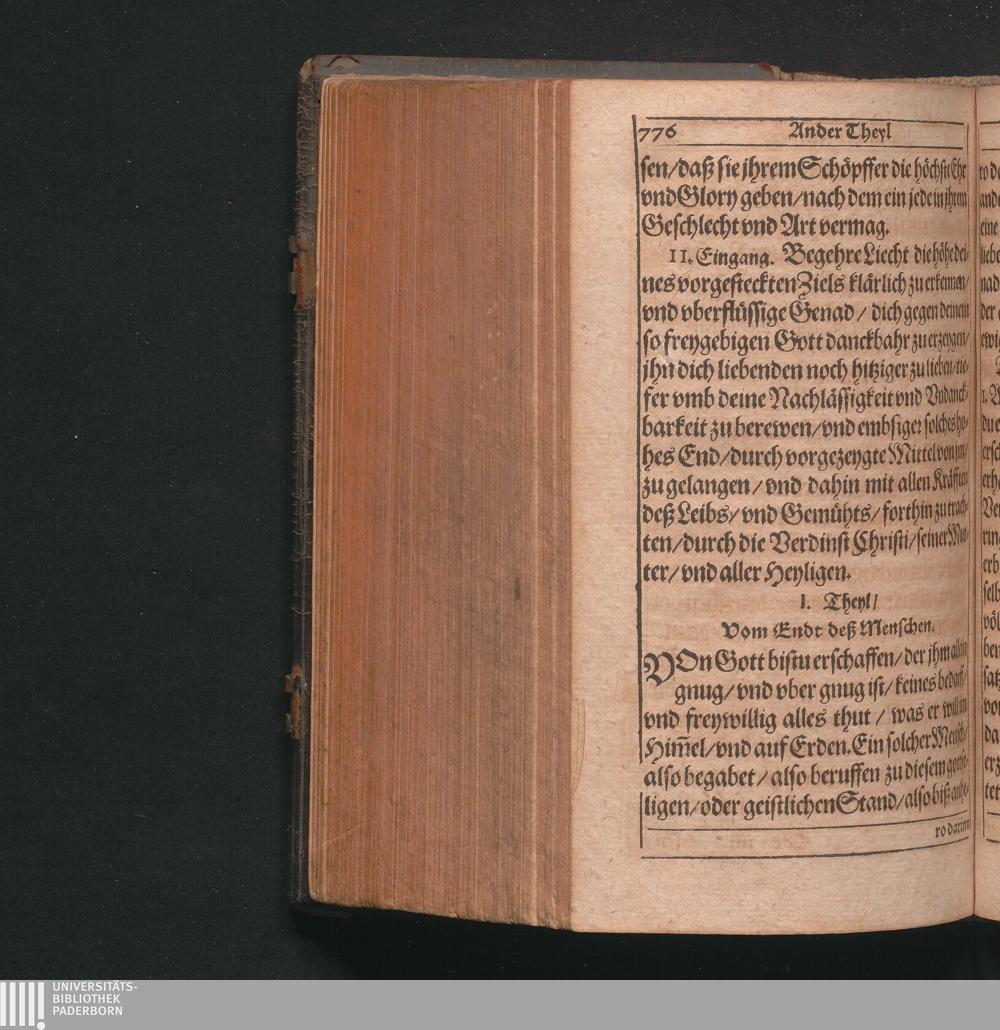 776 Ander Theyl
sen/daß sie jhrem Schöpffer die höchste Ehr
vnd Glory geben/nach dem ein jede in jhrem
Geschlecht vnd Art vermag.
II. Eingang. Begehre Liecht die höhe dei-
nes vorgesteckten Ziels klärlich zu erkennen/
vnd vberflüssige Genad / dich gegen deinem
so freygebigen Gott danckbahr zu erzeygen/
jhn dich liebenden noch hitziger zu lieben/tie-
fer vmb deine Nachlässigkeit vnd Vndanck-
barkeit zu berewen/vnd embsiger solches ho-
hes End/durch vorgezeygte Mittel von jm/
zu gelangen/vnd dahin mit allen Kräfften
deß Leibs/vnd Gemühts/forthin zu trach-
ten/durch die Verdinst Christi/seiner Mut-
ter/vnd aller Heyligen.
I. Theyl/
Vom Endt deß Menschen.
VOn Gott bistu erschaffen/der jhm allein
gnug/vnd vber gnug ist/keines bedarff/
vnd freywillig alles thut / was er will in
Him̃el/vnd auf Erden. Ein solcher Mensch/
also begabet/also beruffen zu diesem gottse-
ligen/oder geistlichen Stand/also biß anhe-
ro darumb
UNIVERSITÄTS-
BIBLIOTHEK
PADERBORN